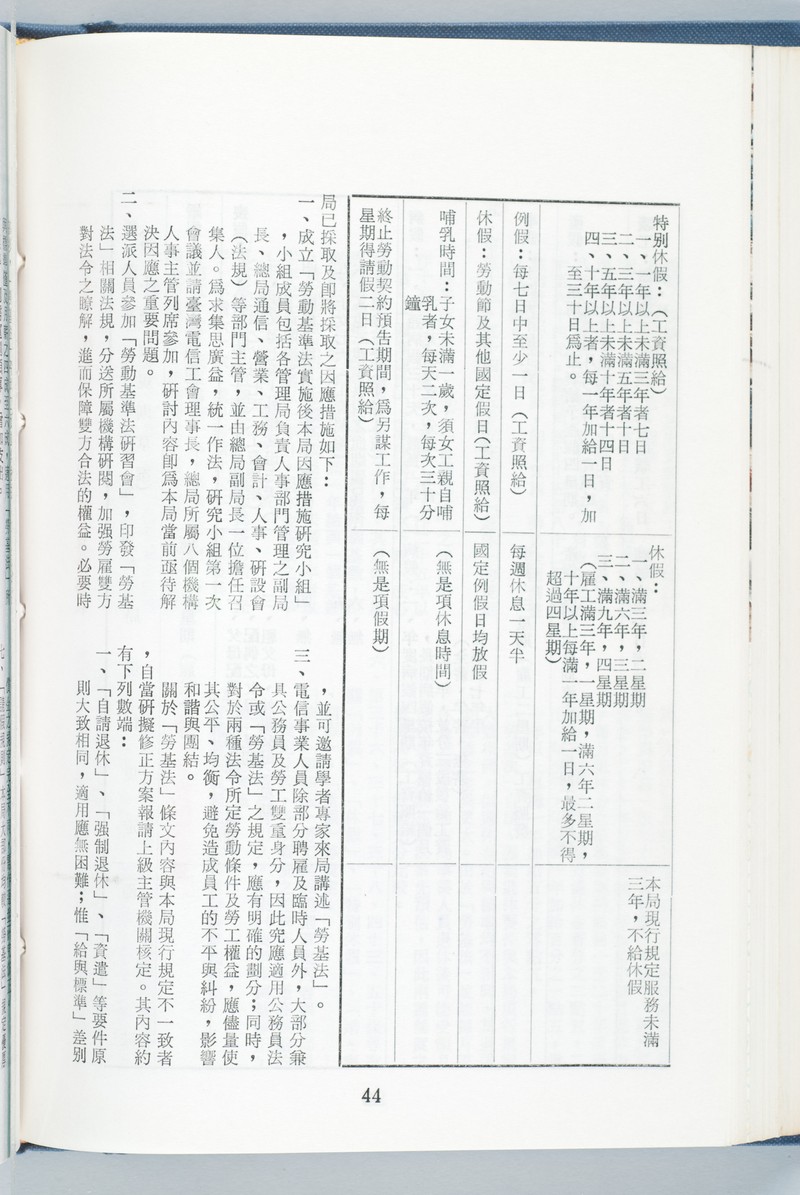 特別休假：（工資照給）
一、一年以上未滿三年者七日
二、三年以上未滿五年者十日
三、五年以上未滿十年者十四日
四、十年以上者，每一年加給一日，加
至三十日爲止。
休假：
一、滿三年，二星期
二、滿六年，三星期
三、滿九年，四星期
（雇工滿三年，一星期，滿六年二星期，
十年以上每滿一年加給一日，最多不得
超過四星期）
本局現行規定服務未滿
三年，不給休假
例假：每七日中至少一日（工資照給）
每週休息一天半
休假：勞動節及其他國定假日（工資照給）
國定例假日均放假
哺乳時間：子女未滿一歲，須女工親自哺
乳者，每天二次，每次三十分
鐘
（無是項休息時間）
終止勞動契約預告期間，爲另謀工作，每
星期得請假二日（工資照給）
（無是項假期）
局已採取及卽將採取之因應措施如下：
一、成立「勞動基準法實施後本局因應措施研究小組」
，小組成員包括各管理局負責人事部門管理之副局
長、總局通信、營業、工務、會計、人事、研設會
（法規）等部門主管，並由總局副局長一位擔任召
集人。爲求集思廣益，統一作法，研究小組第一次
會議並請臺灣電信工會理事長，總局所屬八個機構
人事主管列席參加，研討內容卽爲本局當前亟待解
決因應之重要問題。
二、選派人員參加「勞動基準法研習會」，印發「勞基
法」相關法規，分送所屬機構研閱，加强勞雇雙方
對法令之瞭解，進而保障雙方合法的權益。必要時
，並可邀請學者專家來局講述「勞基法」。
三、電信事業人員除部分聘雇及臨時人員外，大部分兼
具公務員及勞工雙重身分，因此究應適用公務員法
令或「勞基法」之規定，應有明確的劃分；同時，
對於兩種法令所定勞動條件及勞工權益，應儘量使
其公平、均衡，避免造成員工的不平與糾紛，影響
和諧與團結。
關於「勞基法」條文內容與本局現行規定不一致者
，自當研擬修正方案報請上級主管機關核定。其內容約
有下列數端：
一、「自請退休」、「强制退休」、「資遣」等要件原
則大致相同，適用應無困難；惟「給與標準」差別
44